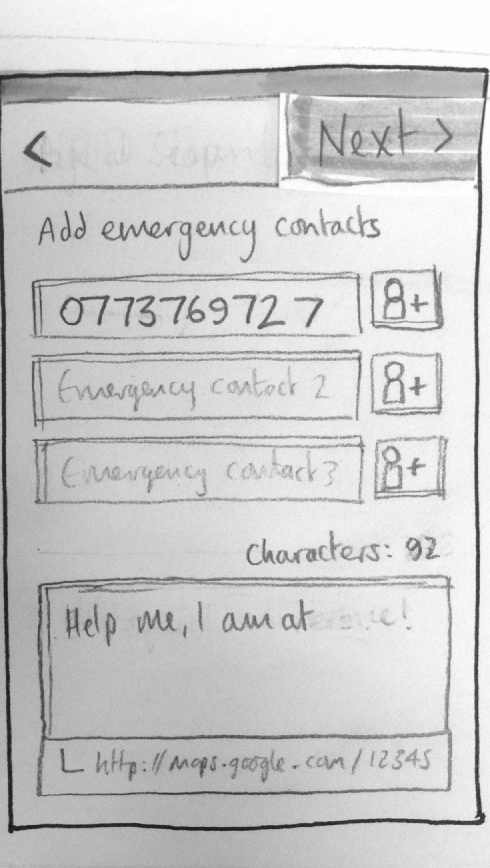 < Next >
Add emergency contacts
0773769727
Emergency contact 2
Emergency contact 3
Characters: 92
Help me, I am at
http://maps.google.com/12345